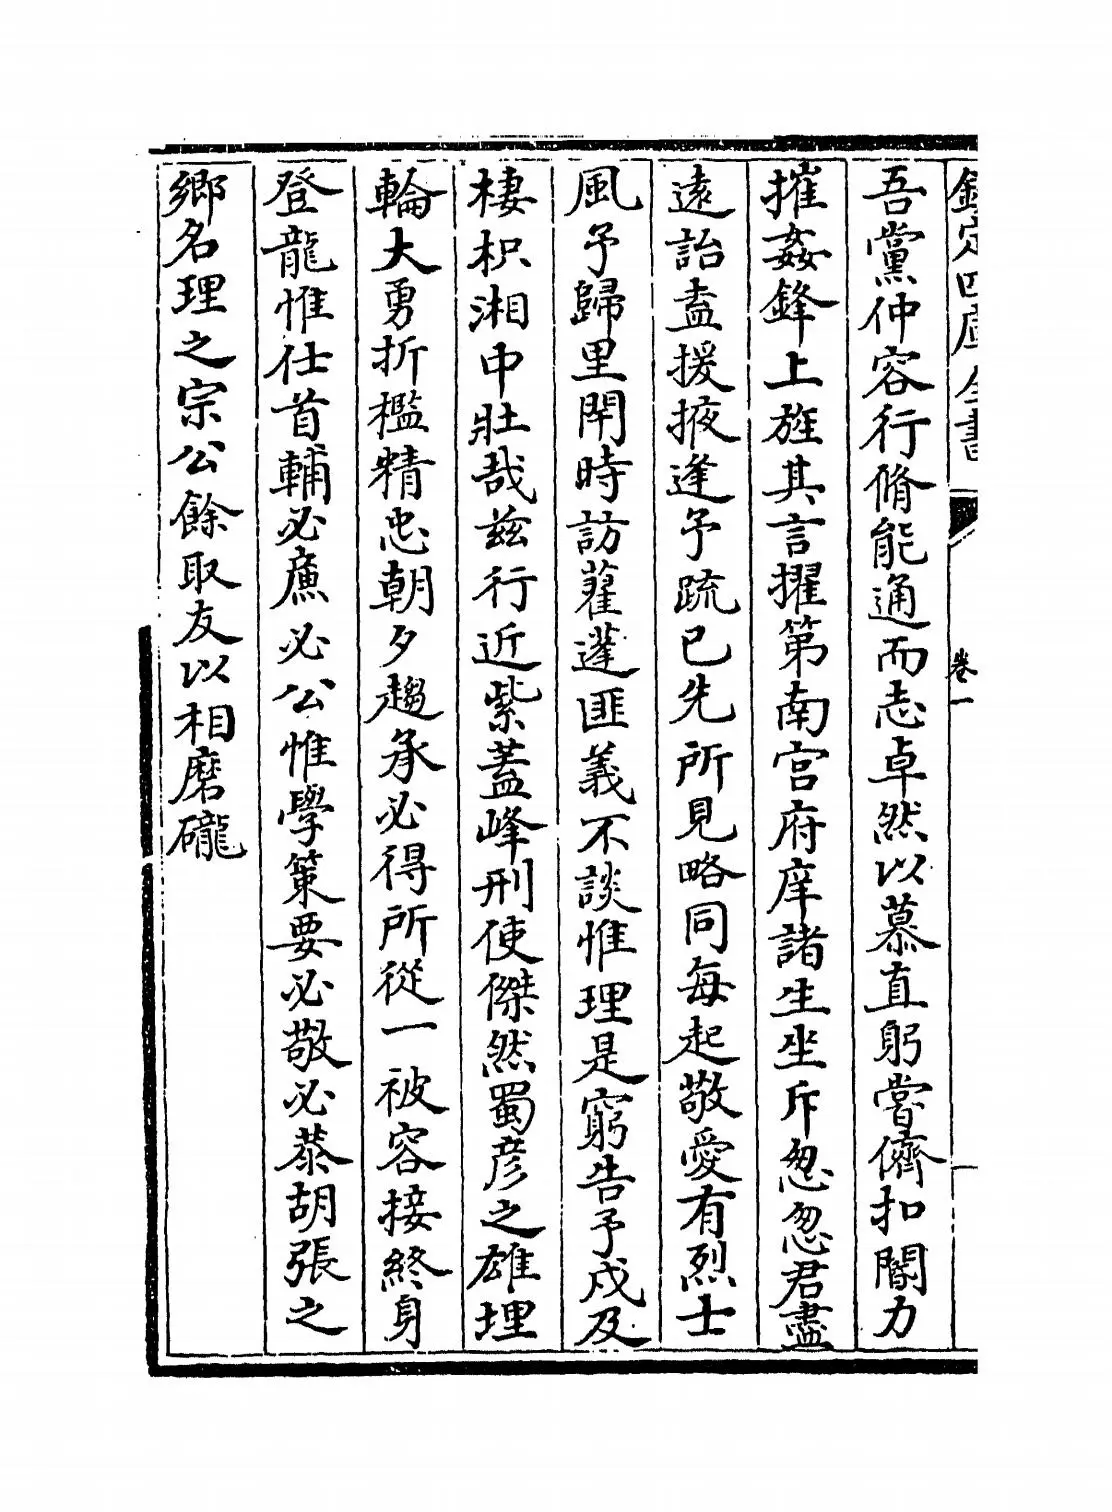 欽定四庫全書
卷一
吾黨仲容行脩能通而志卓然以慕直躬嘗儕扣閽力
摧姦鋒上旌其言擢第南宮府庠諸生坐斥怱怱君盡
遠詒盍援掖逢予疏已先所見略同每起敬愛有烈士
風予歸里閈時訪藋蓬匪義不談惟理是窮告予戍及
棲枳湘中壯哉兹行近紫蓋峰刑使傑然蜀彦之雄埋
輪大勇折檻精忠朝夕趨承必得所從一被容接終身
登龍惟仕首輔必廉必公惟學策要必敬必恭胡張之
鄉名理之宗公餘取友以相磨礲